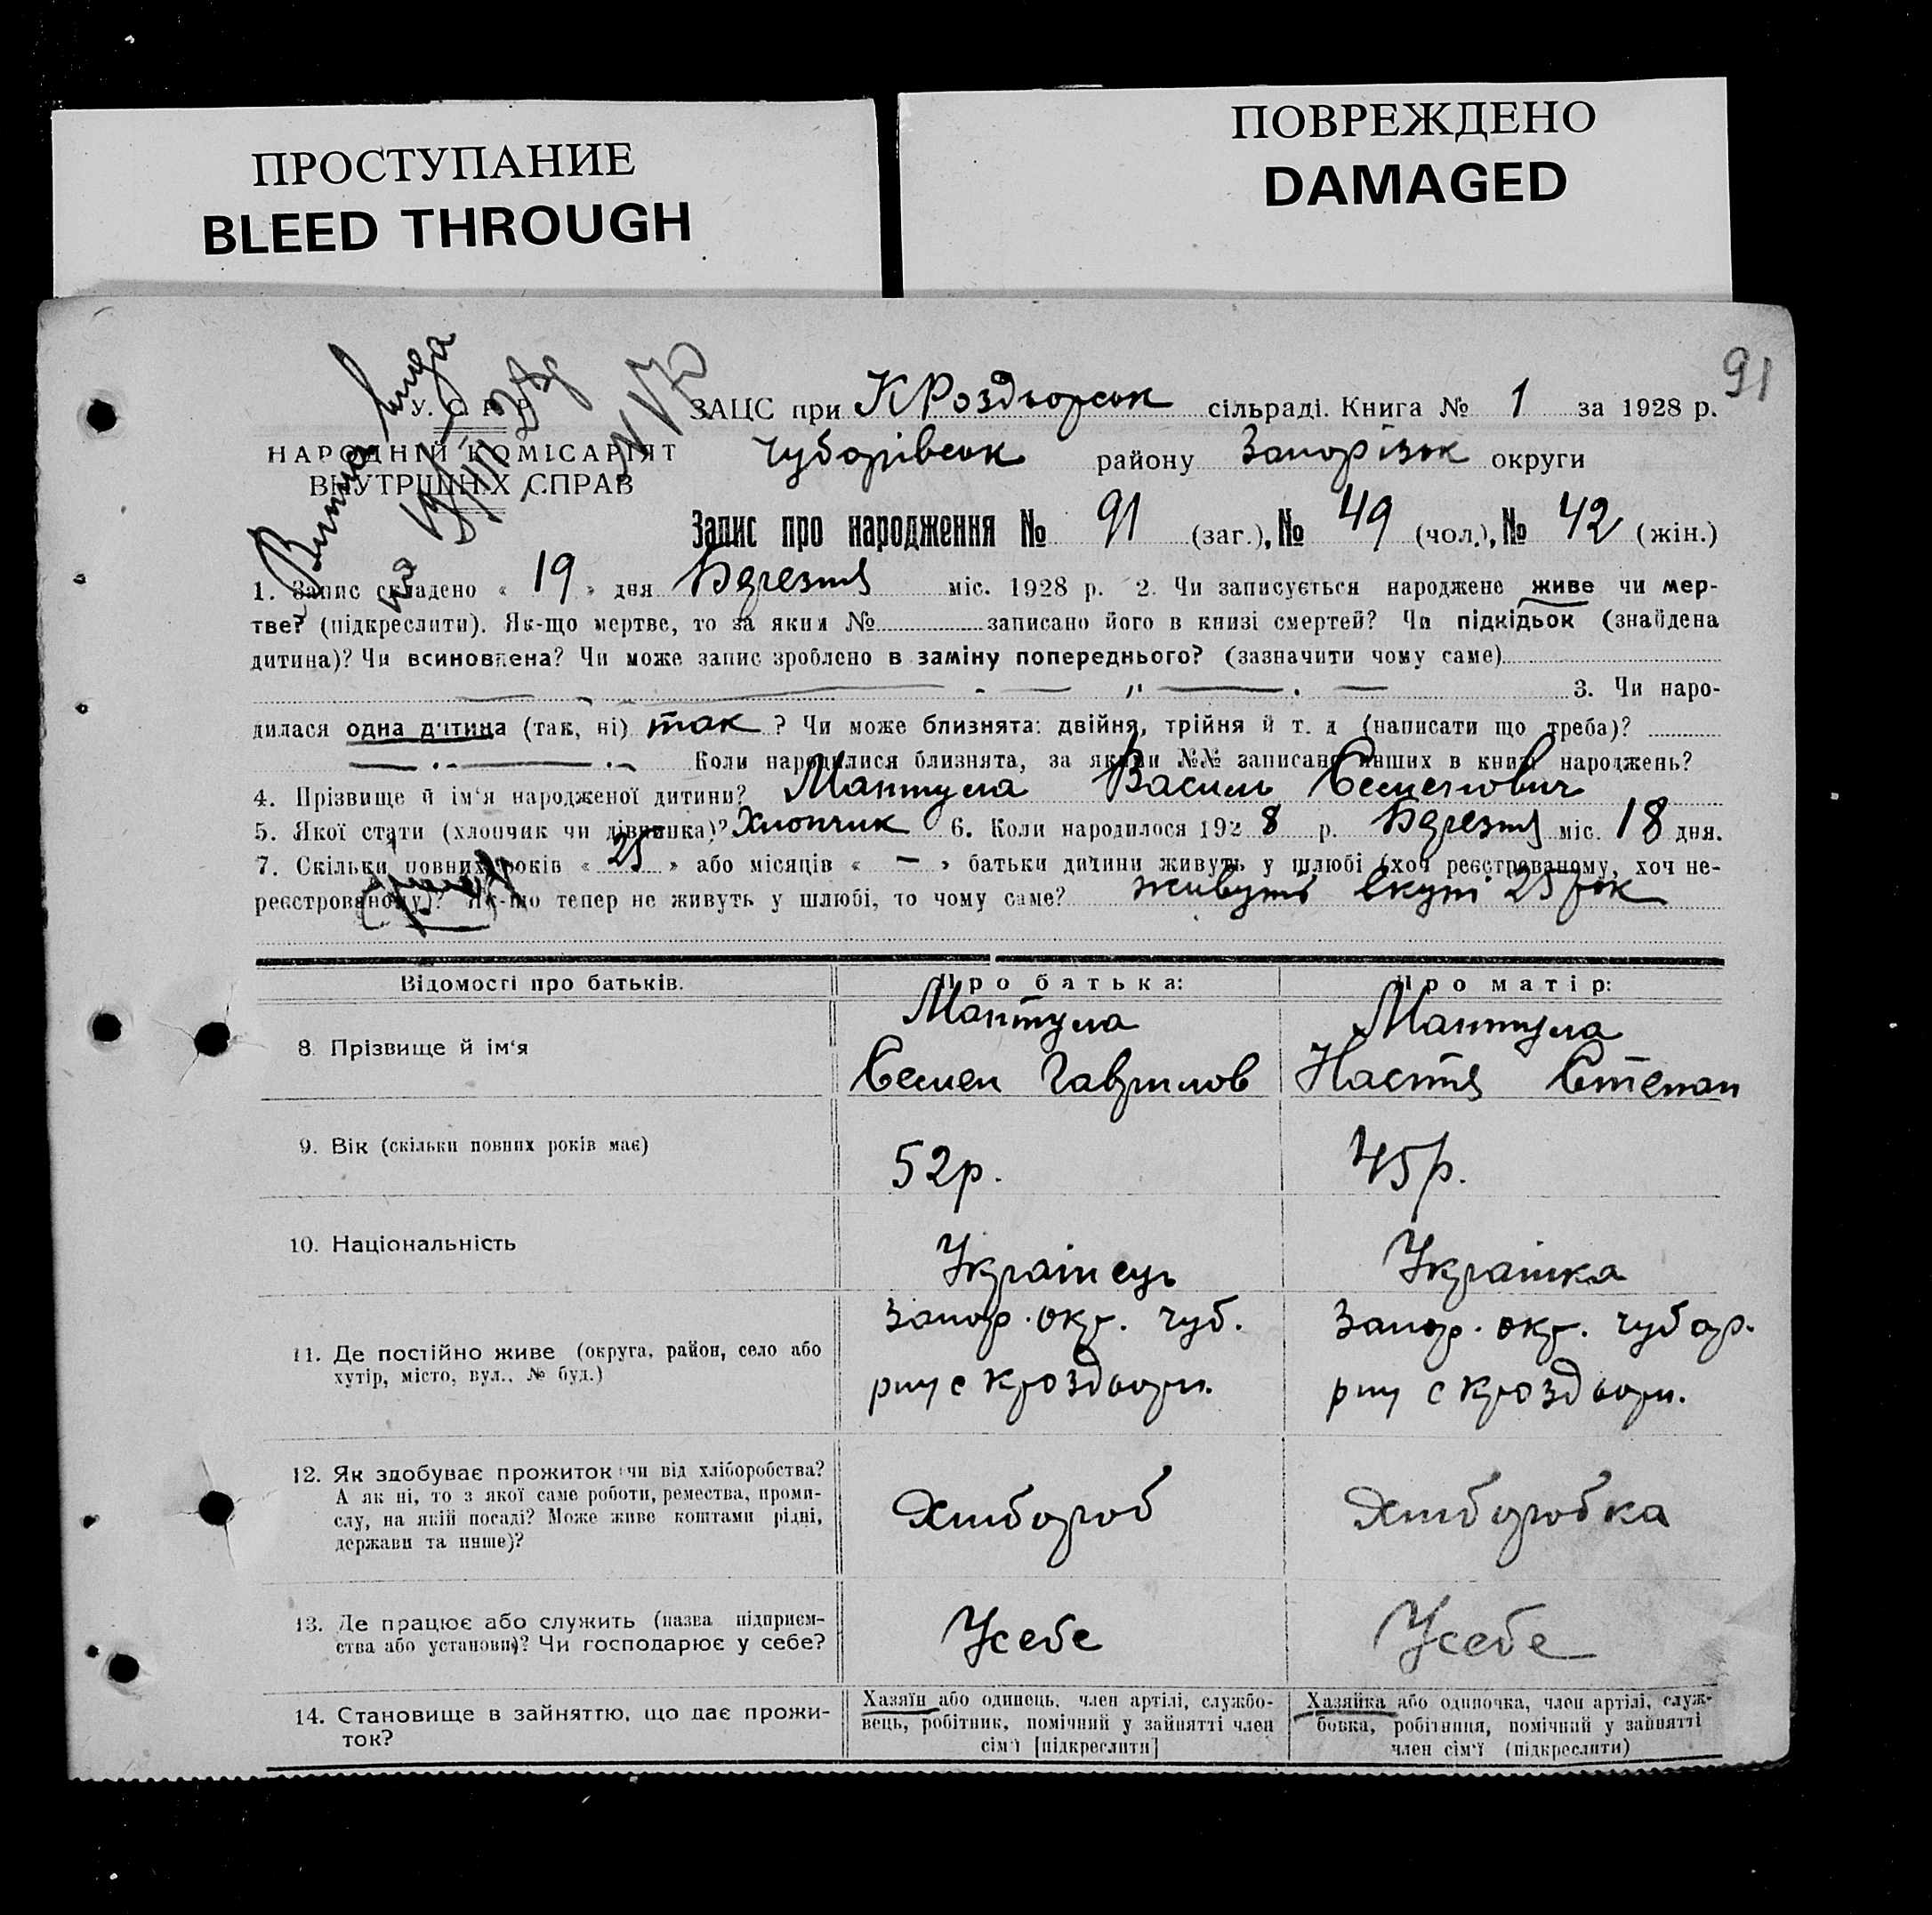 ПРОСТУПАНИЕ
BLEED THROUGH
ПОВРЕЖДЕНО
DAMAGED
91
У. С. Р. Р.
НАРОДНІЙ КОМІСАРІЯТ
ВНУТРІШНІХ СПРАВ
ЗАЦС при К Роздорськ сільраді. Книга № 1 за 1928 р.
Чубарівськ району Запорізьк округи
Запис про народження № 91 (заг.), № 49 (чол.), № 42 (жін.)
1. Запис складено « 19 » дня Березня міс. 1928 р. 2. Чи записується народжене живе чи мер-
тве? (підкреслити). Як-що мертве, то за яким № записано його в книзі смертей? Чи підкідьок (знайдена
дитина)? Чи всиновлена? Чи може запис зроблено в заміну попереднього? (зазначити чому саме)
3. Чи наро-
дилася одна дитина (так, ні) так ? Чи може близнята: двійня, трійня й т. д (написати що треба)?
Коли народилися близнята, за якими №№ записано інших в книзі народжень?
4. Прізвище й ім'я народженої дитини? Мантула Василь Семенович
5. Якої стати (хлопчик чи дівчинка)? Хлопчик 6. Коли народилося 1928 р. Березня міс. 18 дня.
7. Скільки повних років « 25 » або місяців « — » батьки дитини живуть у шлюбі (хоч реєстрованому, хоч не-
реєстрованому)? Як-що тепер не живуть у шлюбі, то чому саме? живуть вкупі 25 рок
Відомості про батьків. Про батька: Про матір:
8. Прізвище й ім'я
Мантула
Семен Гаврилов
Мантула
Настя Степан
9. Вік (скільки повних років має)
52р.
45р.
10. Національність
Українець
Українка
11. Де постійно живе (округа, район, село або
хутір, місто, вул., № буд.)
Запор. окр. чуб.
рну с Кроздори.
Запор. окр. чубар.
рну с Кроздори.
12. Як здобуває прожиток: чи від хліборобства?
А як ні, то з якої саме роботи, ремества, проми-
слу, на якій посаді? Може живе коштами рідні,
держави та инше)?
Хлібороб
Хліборобка
13. Де працює або служить (назва підприєм-
ства або установи)? Чи господарює у себе?
Усебе
Усебе
14. Становище в зайняттю, що дає прожи-
ток?
Хазяїн або одинець, член артілі, службо-
вець, робітник, помічний у зайнятті член
сім'ї [підкреслити]
Хазяйка або одиночка, член артілі, служ-
бовка, робітниця, помічний у зайнятті
член сім'ї (підкреслити)